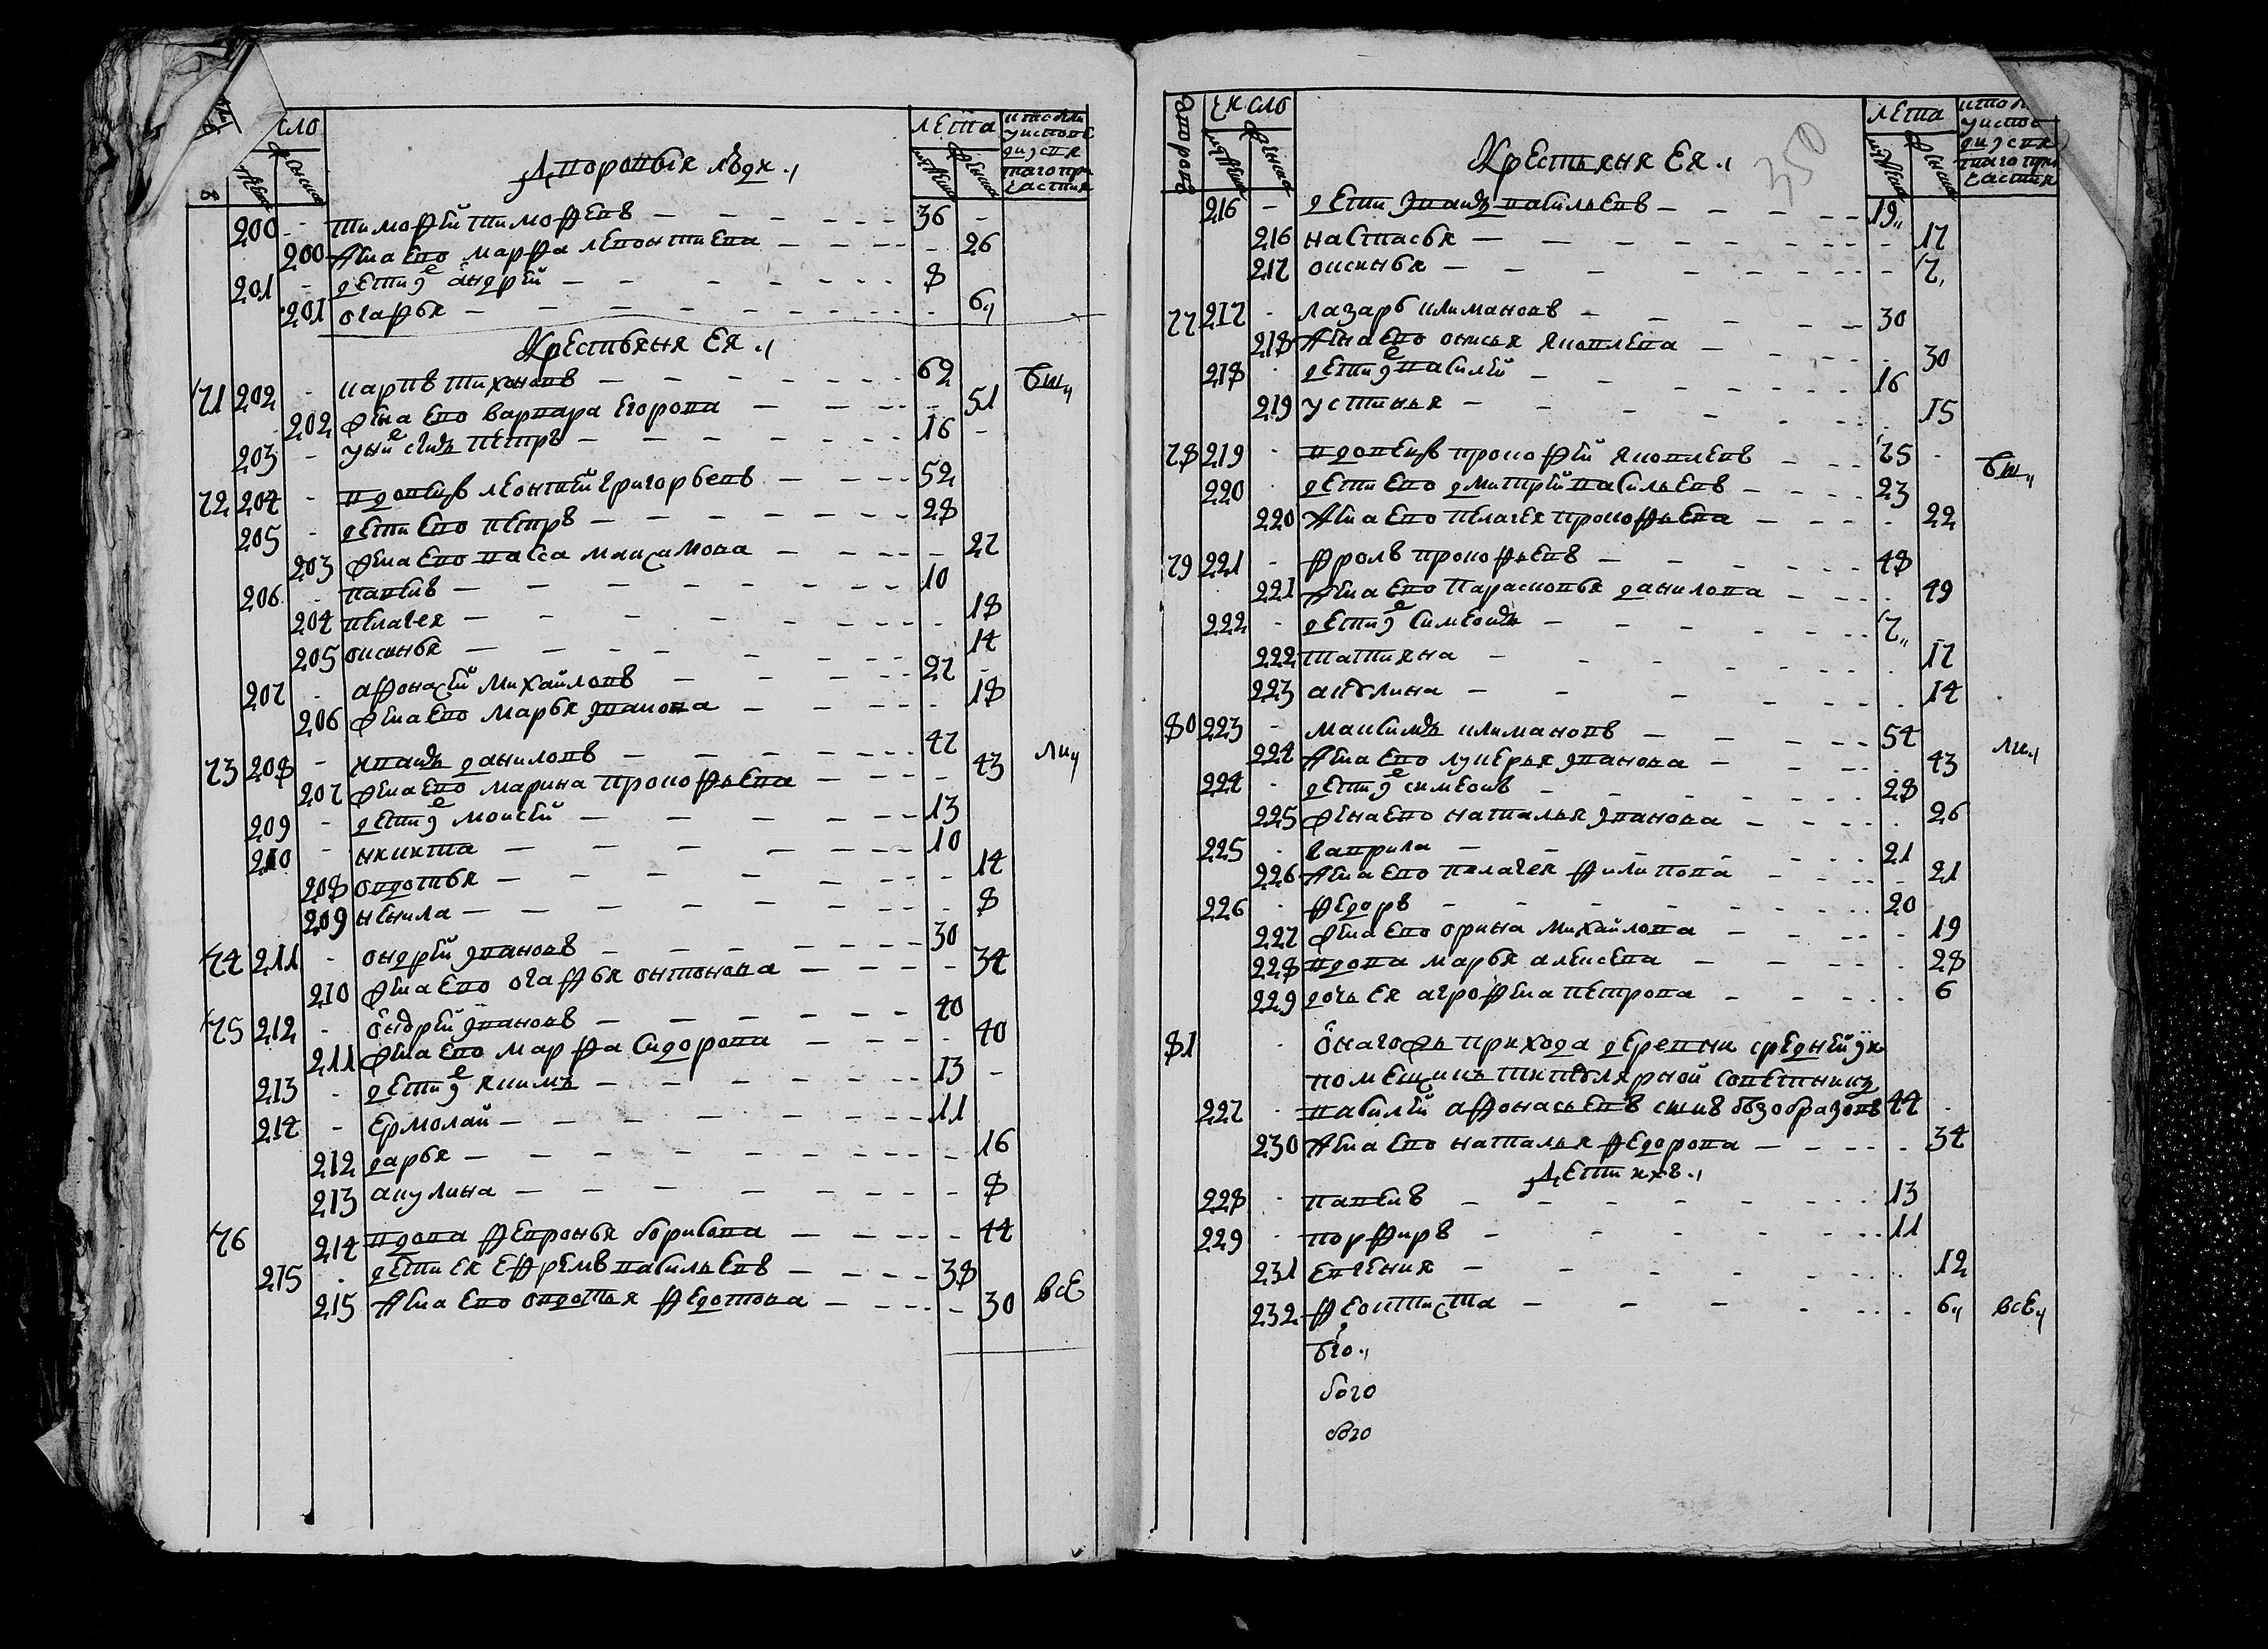 сло
лета
Дворовыя люди
200 - тимофей тимофеевъ - 36 -
200 жена ево марфа леонтиева - 26
201 - дети ё андрей - 8
201 огафья - 6
Крестьяня Ея
71 202 - карпъ тихоновъ - 62 бы
202 жена ево варвара Егорова - 51
203 - у ней сынъ петръ - 16 -
72 204 - вдовецъ леонтей григорьевъ - 52
205 - дети Ево петръ - 28
203 жена Ево васса максимова - 27
206 - павелъ - 10
204 пелагея - 18
205 оксинья - 14
207 - афонасей михайловъ - 27 -
206 жена Ево марья иванова - 18
73 208 - иванъ даниловъ - 47 ли
207 жена Ево марина прокофьева - 43
209 - дети ё моисей - 13
210 - никита - 10
208 овдотья - 14
209 ненила - 8
74 211 - ондрей ивановъ - 30
210 жена Ево огафья онтонова - 34
75 212 - ондрей ивановъ - 40
211 жена Ево марфа сидорова - 40
213 - дети ё якимъ - 13 -
214 - Ермолай - 11
212 дарья - 16
213 акулина - 8
76 214 вдова февронья борисова - 44
215 - дети ея Ефремъ васильевъ - 38
215 жена Ево овдотья федотова - 30 все
дворовъ
число
лета
Крестьяня Ея
350
216 - дети иванъ васильевъ - 19
216 настасья - 17
217 оксинья - 7
77 217 - лазарь климановъ - 30
218 жена Ево онисья яковлева - 30
218 - дети ё василей - 16
219 устинья - 15
78 219 - вдовецъ прокофей яковлевъ - 75 - бы
220 - дети Ево дмитрей васильевъ - 23
220 жена Ево пелагея прокофьева - 22
79 221 - фролъ прокофьевъ - 48
221 жена Ево парасковья данилова - 49
222 - дети ё симеонъ - 7
222 татияна - 17
223 акулина - 14
80 223 - максимъ климановъ - 54 ли
224 жена Ево лукерья иванова - 43
224 - дети ё симеонъ - 28
225 жена Ево наталья иванова - 26
225 - гаврила - 21
226 жена Ево пелагея филипова - 21
226 - федоръ - 20
227 жена Ево орина михайлова - 19
228 вдова марья алексева - 28
229 дочь Ея агрофена петрова - 6
81 - онагожъ прихода деревни средней
помещикъ титулярной советникъ
227 - василей афонасьевъ сынъ безобразовъ 44 -
230 жена Ево наталья федорова - 34
Дети ихъ
228 - павелъ - 13
229 - порфиръ - 11
231 Евгения - 12
232 феоктиста - 6 все
бго
бого
бого